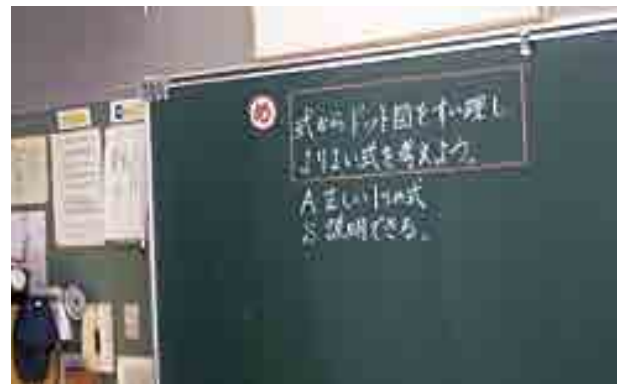 め
式からドット図をすい理し
よりよい式を考えよう。
A 正しい1つの式
S 説明できる。